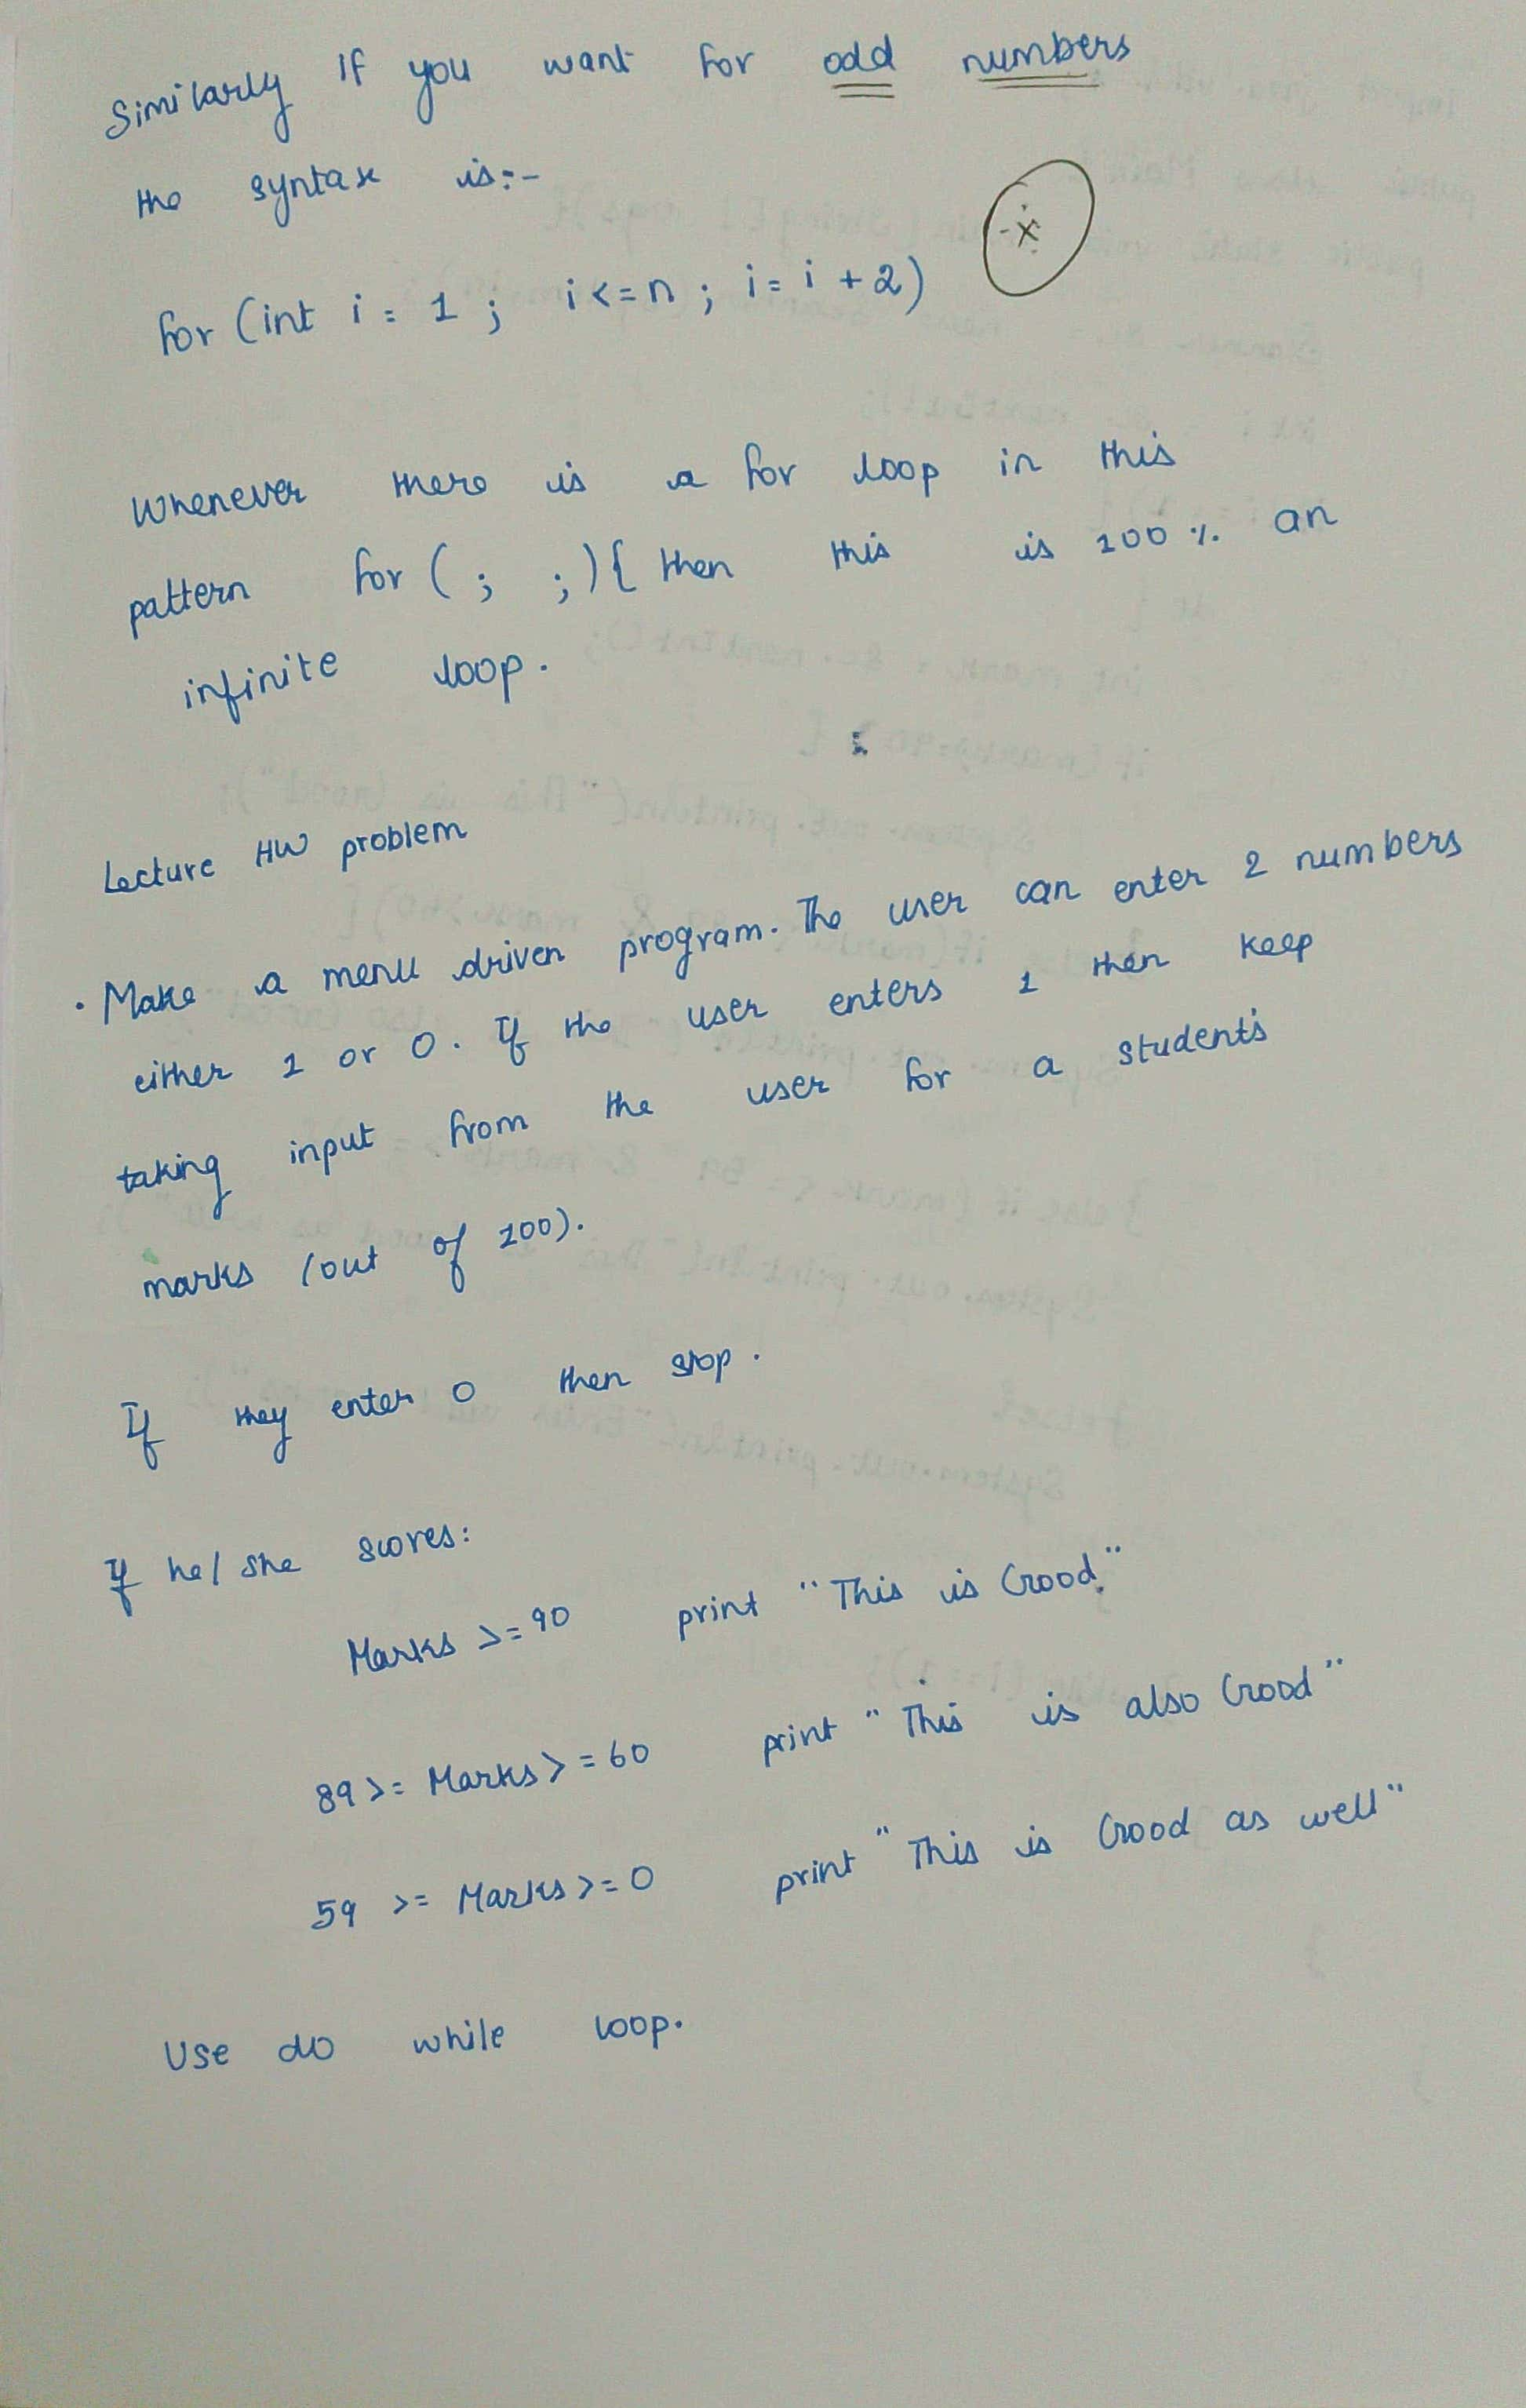 Similarly if you want for odd numbers
the syntax is:-
for (int i = 1 ; i<=n ; i= i +2)
Whenever there is a for loop in this
pattern for ( ; ; ){ then this is 100 % an
infinite loop.
Lecture HW problem
• Make a menu driven program. The user can enter 2 numbers
either 1 or 0. If the user enters 1 then keep
taking input from the user for a student's
marks (out of 100).
If they enter 0 then stop.
If he/she scores:
Marks >=90 print "This is Good."
89>= Marks>=60 print "This is also Good"
59 >= Marks>=0 print "This is Good as well"
Use do while loop.